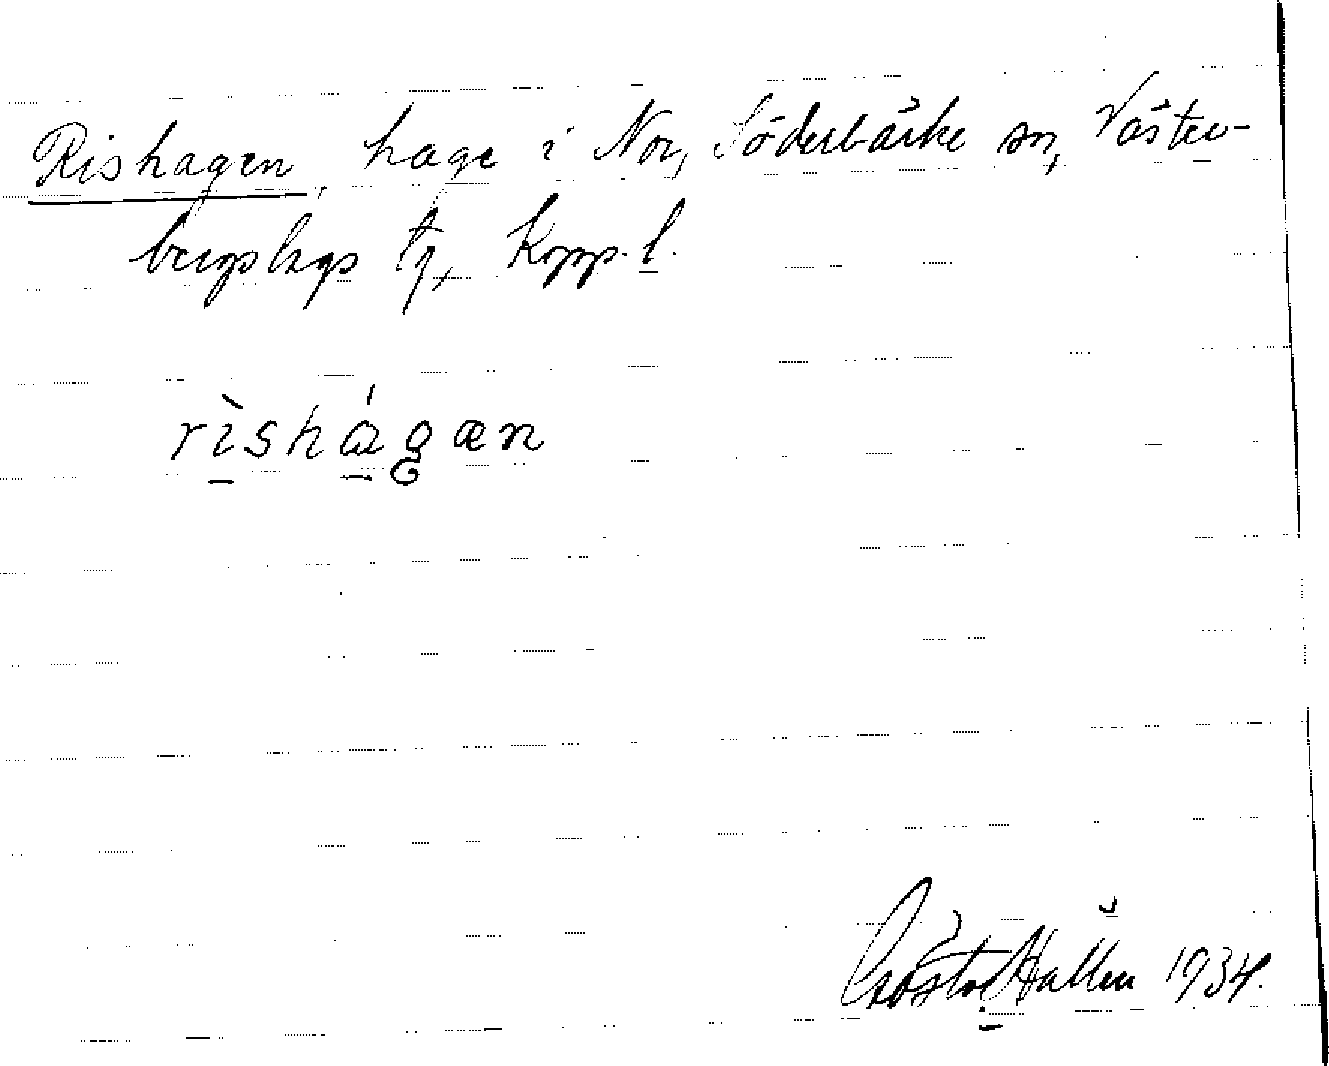 Rishagen, hage i Nor, Söderbärke sn, Väster-
bergslags tg, Kopp. l.
rìshágæn
Gösta Hallén 1934.